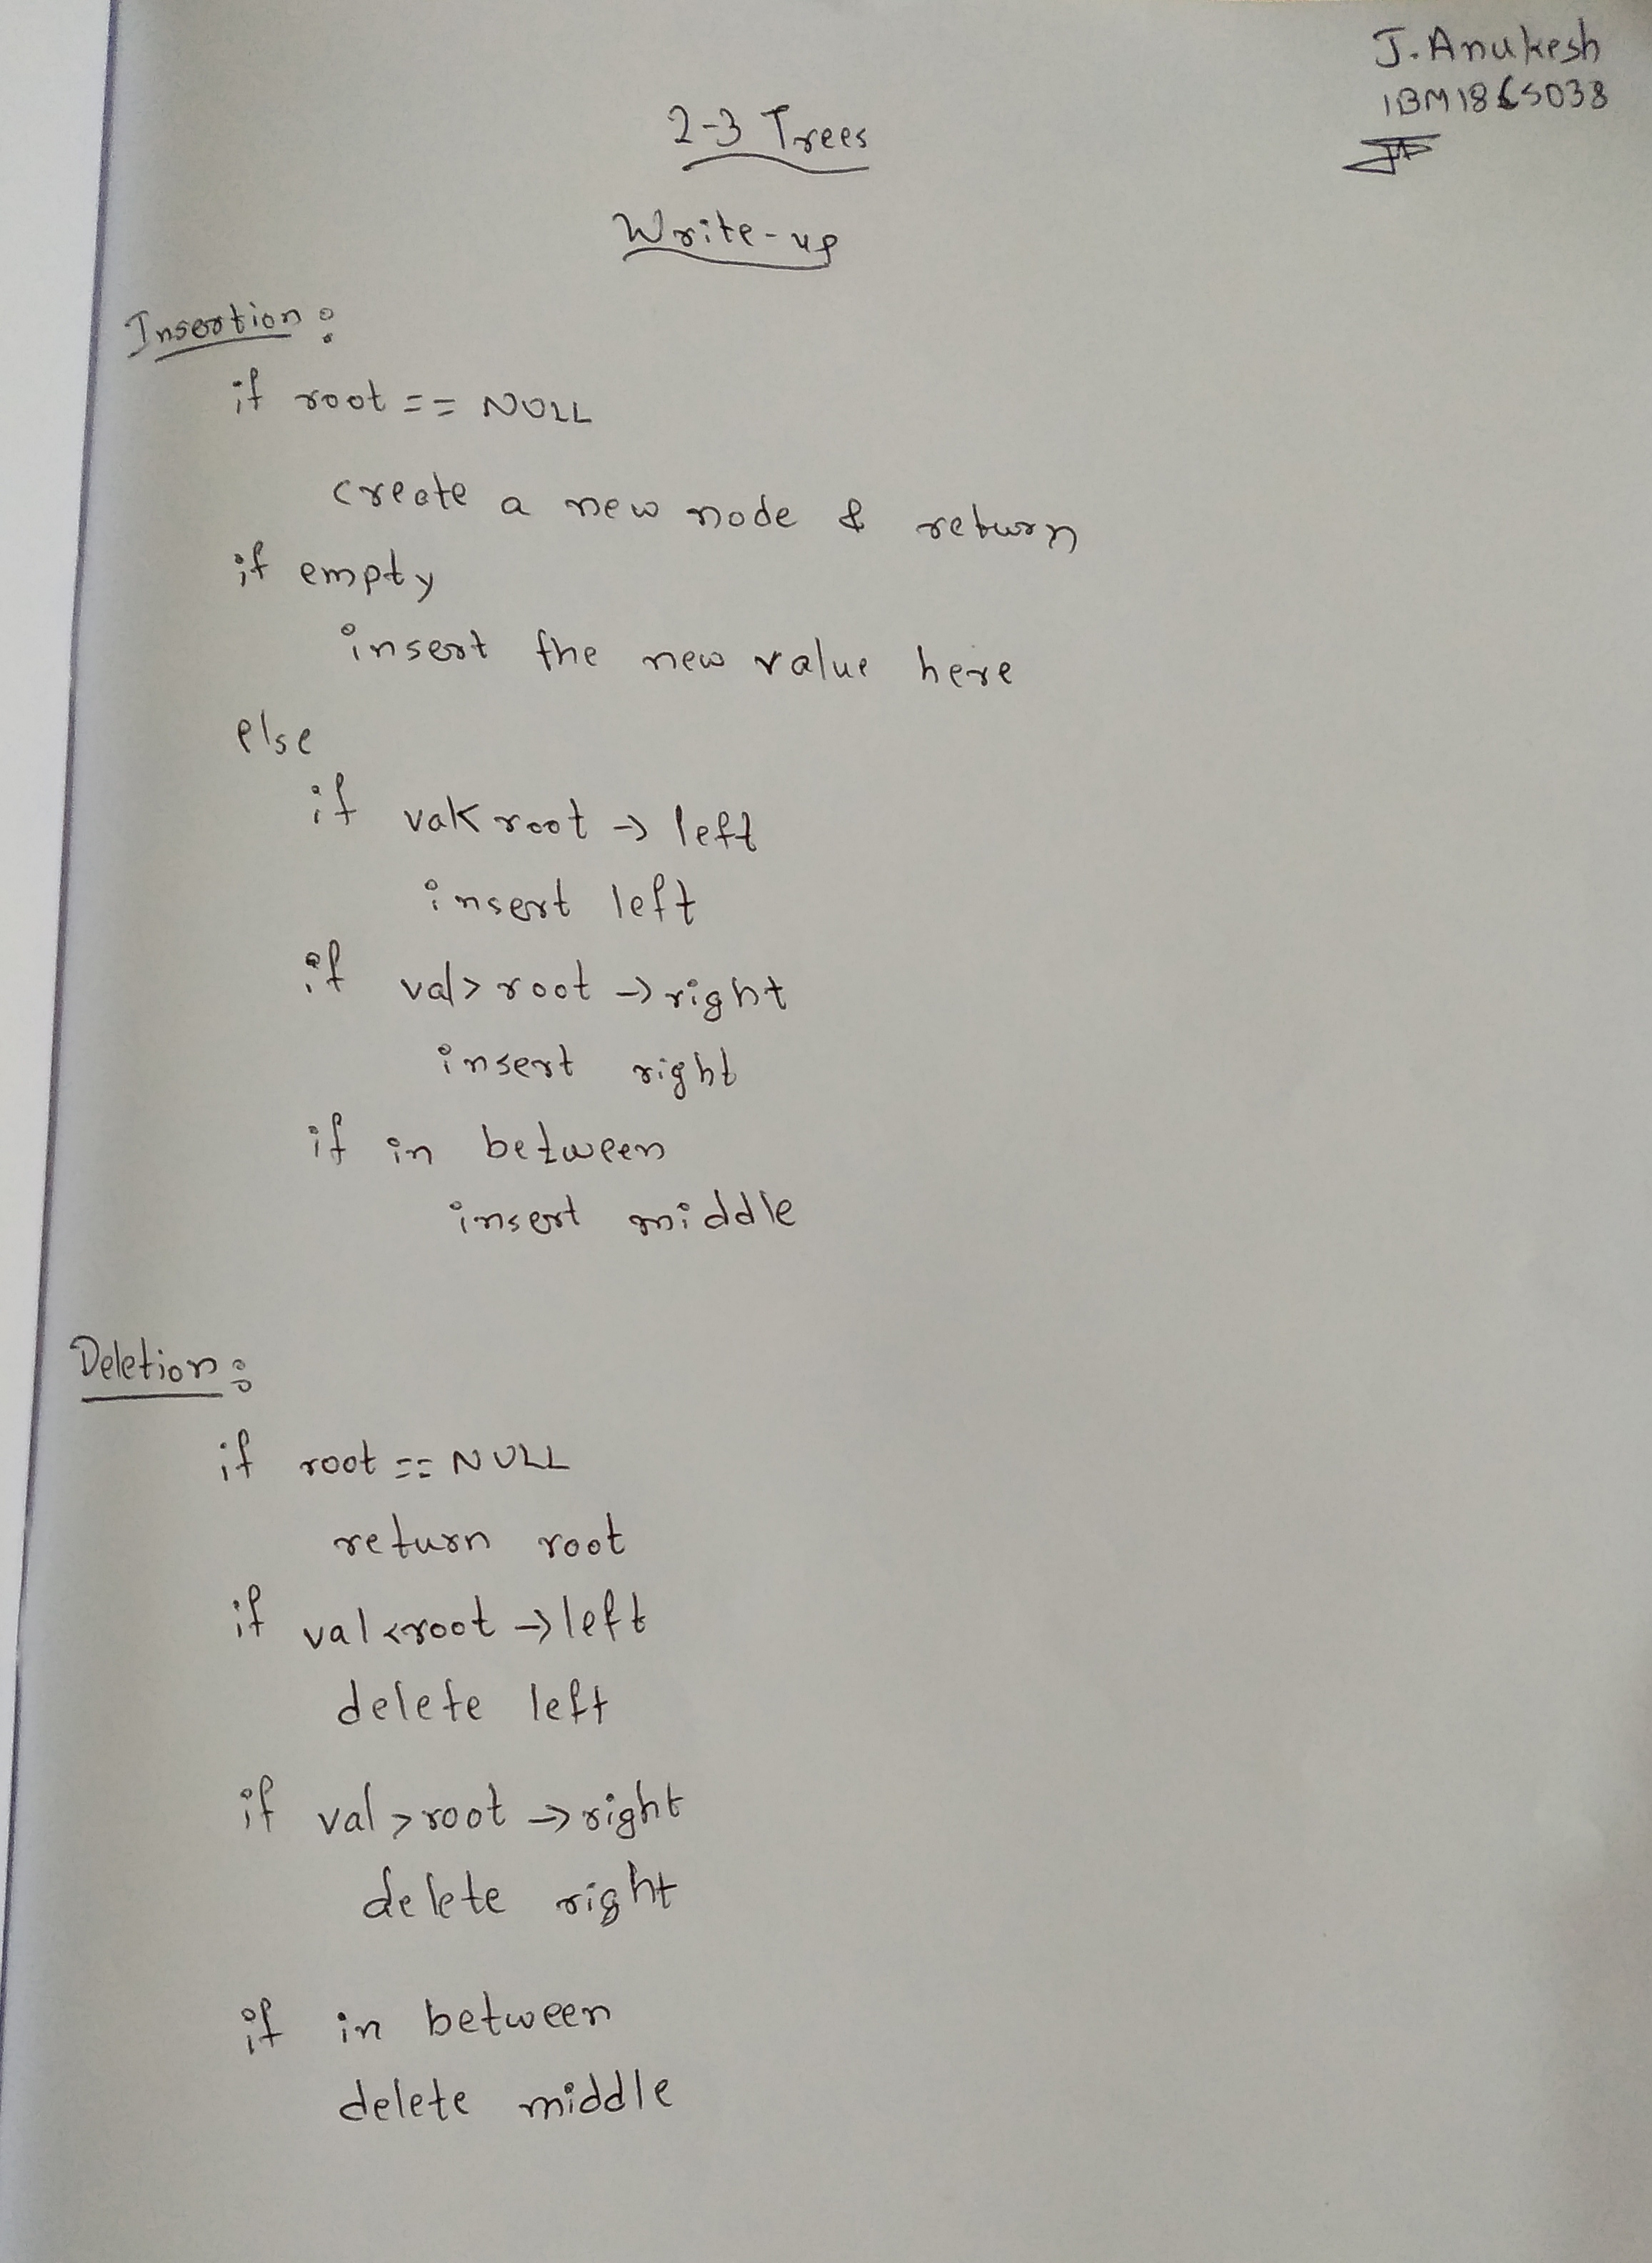 J. Anukesh
1BM18CS038
2-3 Trees
Write-up
Insertion:
if root == NULL
create a new node & return
if empty
insert the new value here
else
if val< root -> left
insert left
if val> root -> right
insert right
if in between
insert middle
Deletion:
if root == NULL
return root
if val<root -> left
delete left
if val > root -> right
delete right
if in between
delete middle